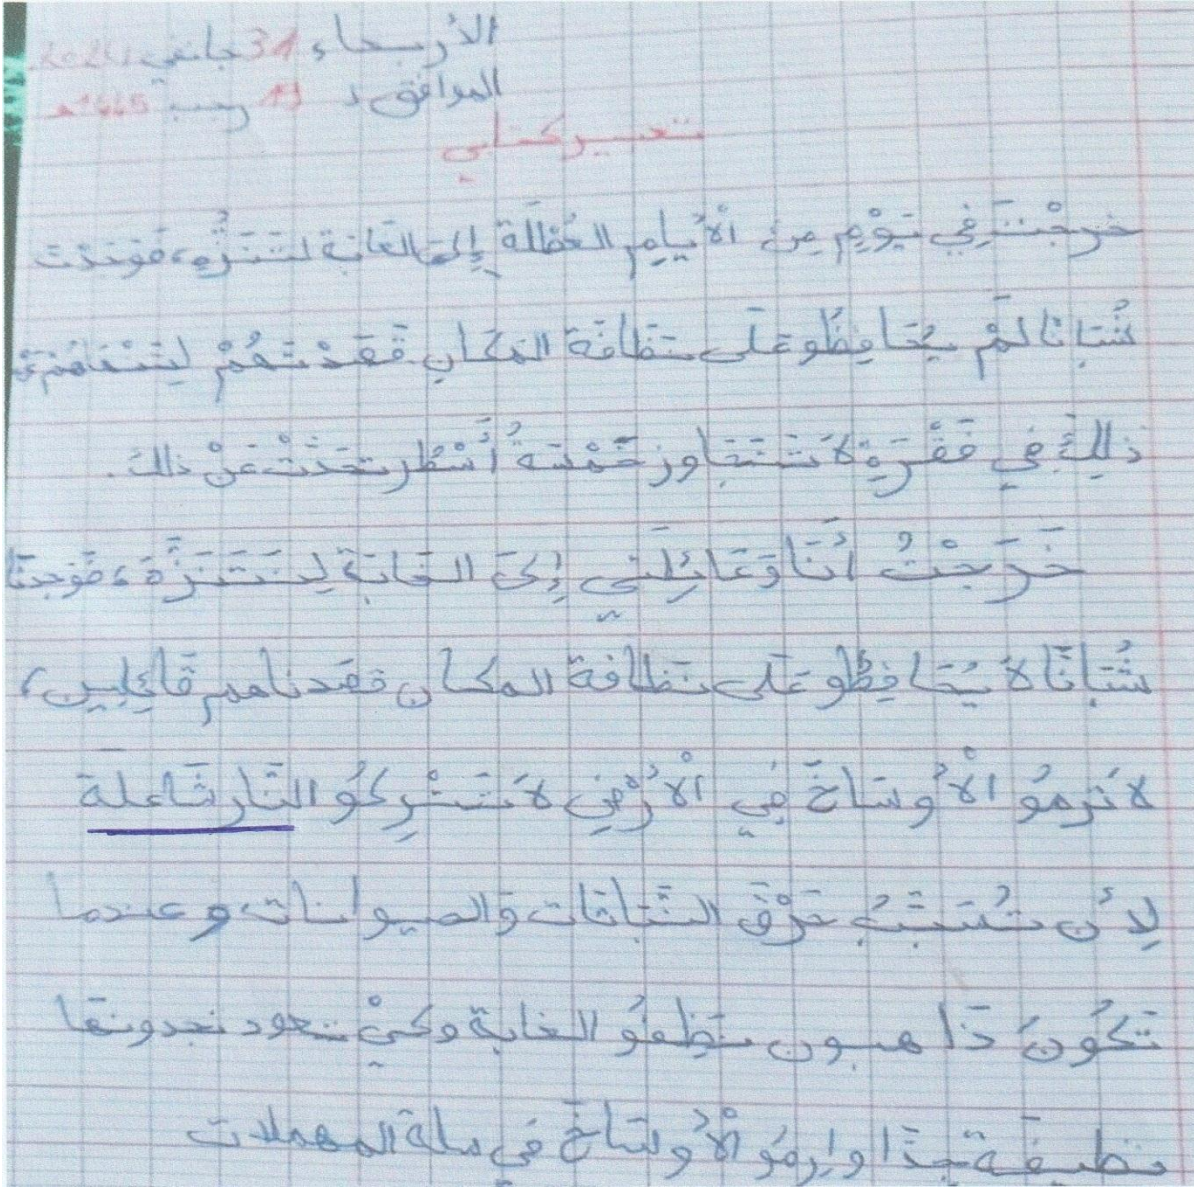 الأربعاء 31 جانفي 2024
الموافق لـ 19 رجب 1445هـ
تعبير كتابي
خرجْتَ فِي يَوْمٍ مِنَ الْأَيَامِ العُطْلَةِ إِلَى الغَابَةِ لتَتَنَزُّهِ، فَوَجَدْتَ
شُبَانًا لَمْ يُحَافِظُو عَلَى نظَافَةِ المَكَانِ فَقَصَدْتَهُمْ لِتَنْهَاهُمْ عَنْ
ذَلِكَ فِي فَقْرَةٍ لَا تَتَجَاوز خَمْسَةُ أَسْطُر تحَدَثْ عَنْ ذلك.
خَرَجْتُ أَنَا وَعَائِلَتِي إِلَى الغَابَةِ لِنَتَنَزَّهَ، فَوَجدنَا
شُبَانًا لَا يُحَافِظُو عَلَى نظَافة المكان فقصدناهم قَائِلِين،
لا تَرمُو الْأَوسَاخَ فِي الْأَرْضِ لَا تَتْرِكُو النَّار شَاعلة
لِأَن تُسَبِّبُ حَرْقَ النَّبَاتَات وَالحيوانات وعندما
تَكُونُ ذَاهبون نَظِفُو الغابة وكيْ تعود تجدونها
نظيفَة جِدًا وارمُو الْأَوسَاخَ في سلة المهملات